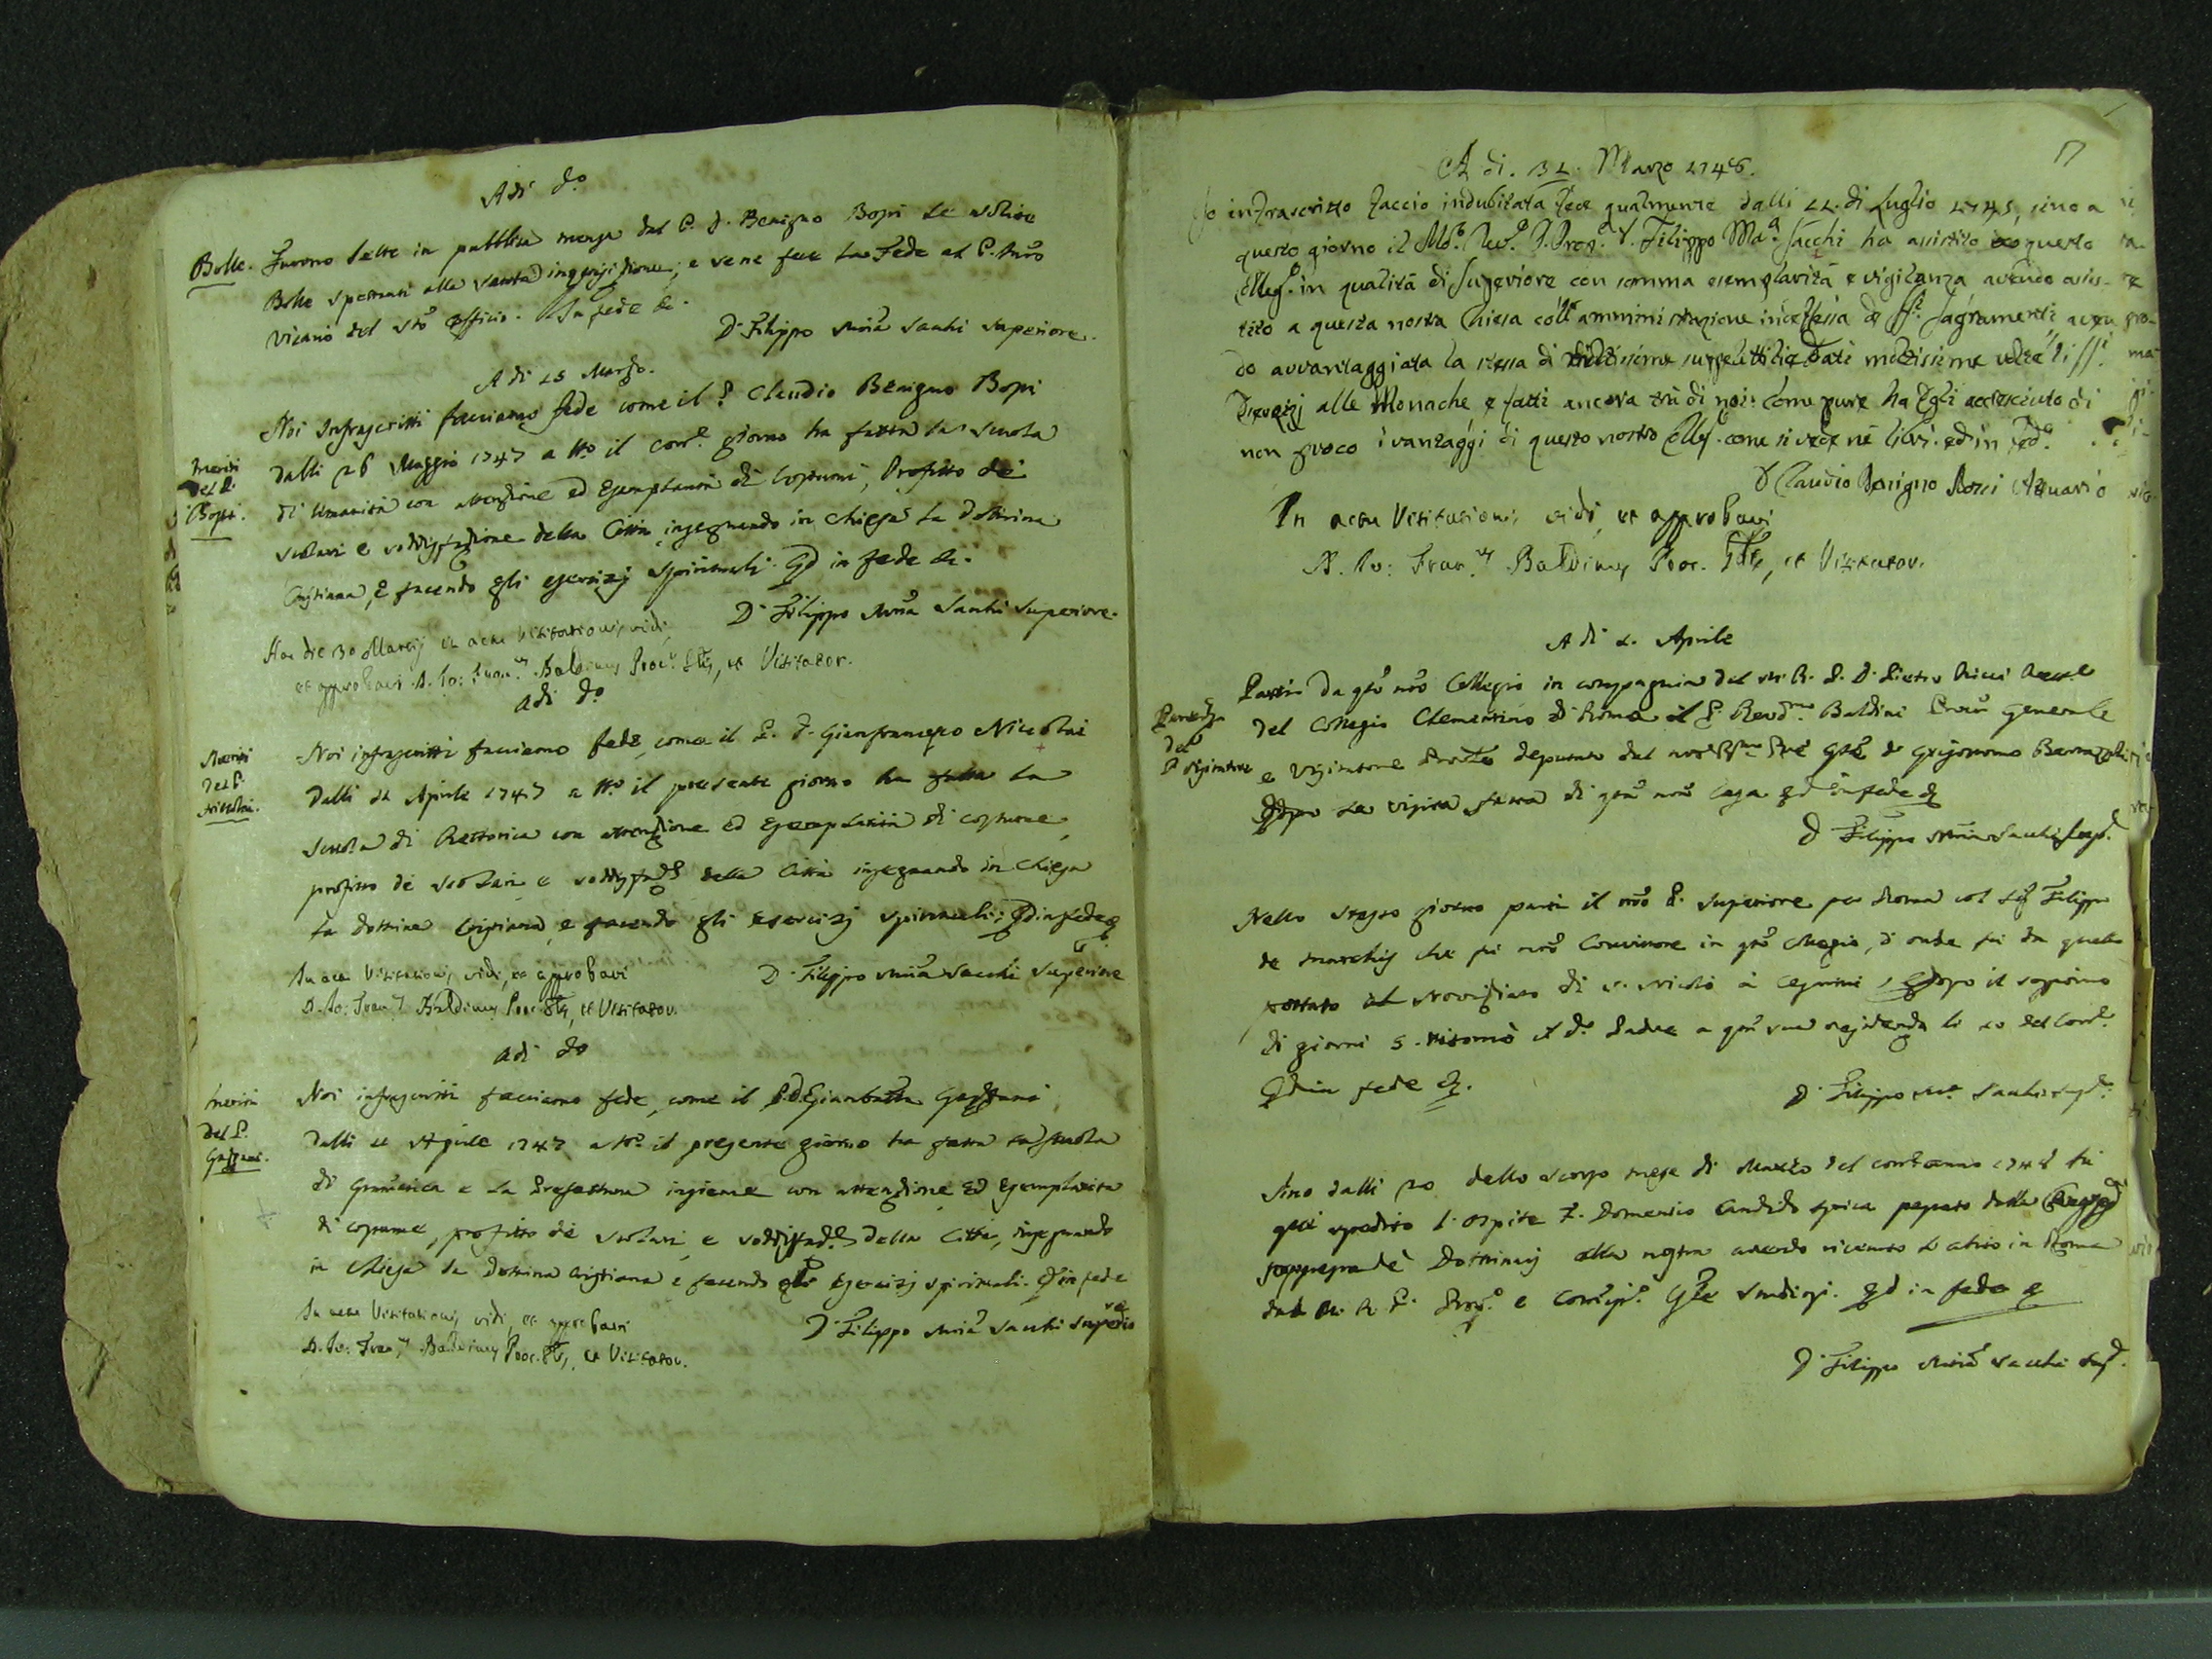 Adi do
Bolle. Furono lette in pubblica mensa dal P. D. Benigno Bossi le solite
Bolle spettanti alla Santa inquisizione, e ve ne fece la Fede al P. nro
Vicario del Sto Officio. In fede &.
D. Filippo Mria Sacchi Superiore.
A di 25 Marzo.
Noi Infrascritti facciamo fede come il P. Claudio Benigno Bossi
Meriti
del P.
Bossi.
dalli 26 Maggio 1747 a tto il corre giorno ha fatta la scuola
di Umanità con attenzione ed Esemplarità di costumi, Profitto de'
scolari e soddisfazione della Città, insegnando in chiesa la Dottrina
Cristiana, e facendo gli esercizj spirituali. Qd in fede &.
D. Filippo Mria Sacchi Superiore.
Hac die 30 Martij in actu Visitationis vidi,
et approbavi D. Jo: Franus Baldinus Procr Glis, et Visitator.
adi do
Meriti
del P.
Niccolai.
Noi infrascritti facciamo fede, come il P. D. Gianfrancesco Niccolai
dalli 22 Aprile 1747 a tto il presente giorno ha fatta la
scuola di Rettorica con attenzione ed esemplarità di costume,
profitto de' scolari e soddisfade della Città insegnando in chiesa
la dottrina Cristiana, e facendo gli Esercizj spirituali; Qd in fede &
In actu Visitationis vidi, et approbavi
D. Filippo Mria Sacchi Superiore
D. Jo: Franus Baldinus Procr Glis, et Visitator.
adi do
Meriti
del P.
Gaspani.
Noi infrascritti facciamo fede, come il P. D. Giambatta
dalli 22 Aprile 1747 a tto il presente giorno ha fatta la scuola
di Gramatica e la Prefettura insieme con attenzione Ed Esemplarità
di costume, profitto de' scolari, e soddisfade della Città, insegnando
in chiesa la Dottrina Cristiana e facendo gli Esercizj spirituali. Qd in fede
In actu Visitationis vidi, et approbavi
D. Filippo Mria Sacchi Superiore
D. Jo: Franus Baldinus Procr Glis, et Visitator.
17
A di. 31. Marzo 1748.
Io infrascritto faccio indubitata fede qualmente dalli 22. di Luglio 1745, sino a
questo giorno il Mo. Revo. P. Propo. D. Filippo Ma. Sacchi ha assistito questo
Collego. in qualità di Superiore con somma esemplarità e vigilanza avendo assis-
tito a questa nostra Chiesa coll' amministrazione de SSi. Sagramenti, aven
do avvantaggiata la stessa di suppellettili, e dati moltissime volte li SSi.
Esercizj alle Monache e fatti ancora trà di noi: come pure ha Egli accresciuto di
non poco i vantaggi di questo nostro Collego. come si vede ne' libri. ed in fede.
D. Claudio Benigno Bossi Attuario
In actu Visitationis vidi, et approbavi
D. Jo: Franus Baldinus Procr. Glis, et Visitator.
A di 2. Aprile
Partenza
del
P. Visitatore
Partì da qto nro Collegio in compagnia del M. R. P. D. Pietro Ricci
del Collegio Clementino di Roma il P. Revdmo Baldini Procur Generale
e Visitatore deputato dal nro Pre Gnle D. Grisostomo
dopo la visita fatta di qta nra Casa. Qd in fede &
D. Filippo Mria Sacchi Supe.
Nello stesso giorno partì il nro P. Superiore per Roma col Sig Filippo
de Marchis che fu nro Convittore in qto Collegio, d'onde fu da quello
portato al Noviziato di S. Nicolò a Cesarini, e dopo il soggiorno
di giorni 5. ritornò il do. Padre a qta sua residenza li 10 del corre.
Qd in fede &.
D. Filippo Ma Sacchi Supe.
Sino dalli 20 dello scorso mese di Marzo del corre anno 1748 fu
qui spedito l'ospite F. Domenico Candido Spica passato dalla
de' Dottrinarj alla nostra avendo ricevuto l'abito in Roma
dal M. R. P. e Gnle Qd in fede &
D. Filippo Mria Sacchi Supe.